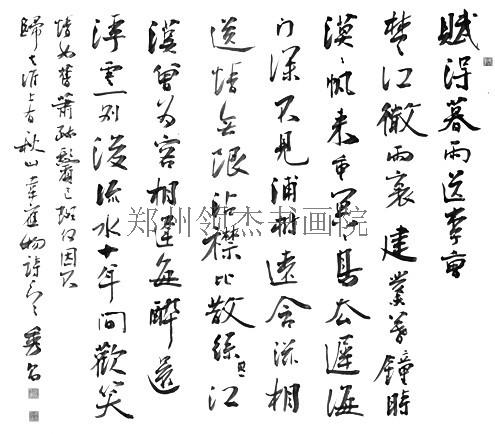 賦得暮雨送李曹
楚江微雨裏建業暮鐘時
漠〻帆来重冥〻鳥去遲海
门深不見浦樹遠含滋相
送情無限沾襟比散絲江
漢曾为客相逢每醉還
浮雲一别後流水十年间歡笑
情如舊蕭疏鬢已斑何因不
歸去淮上有秋山韋應物詩
郑州领杰书画院